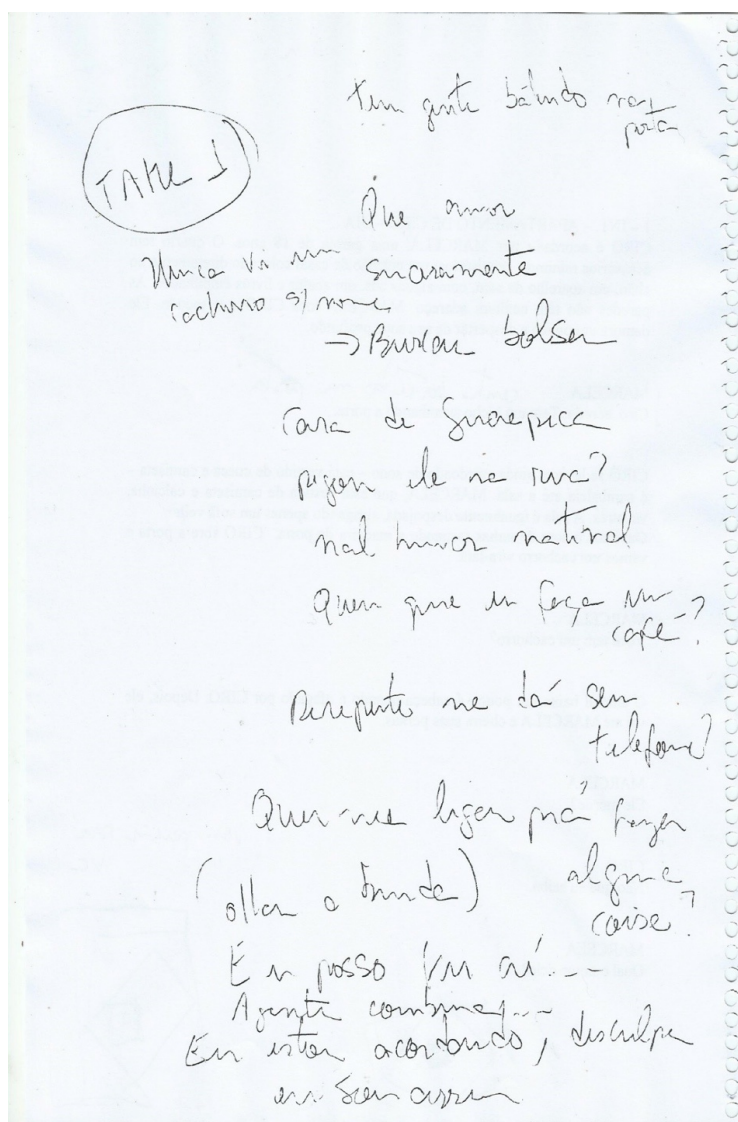 Tem gente batendo na
porta
TAKE 1
Que amor
Nunca vi um
sinceramente
cachorro s/ nome
→ Buscar bolsa
Cara de
pegou ele na rua?
mal humor natural
Quer que eu faça um
café?
Derepente me dá seu
telefone?
Quer me ligar prá fazer
alguma
coisa?
(olhar a bunda)
Eu posso vir aí...
Agente combina...
Eu estou acordando, desculpa
eu sou assim